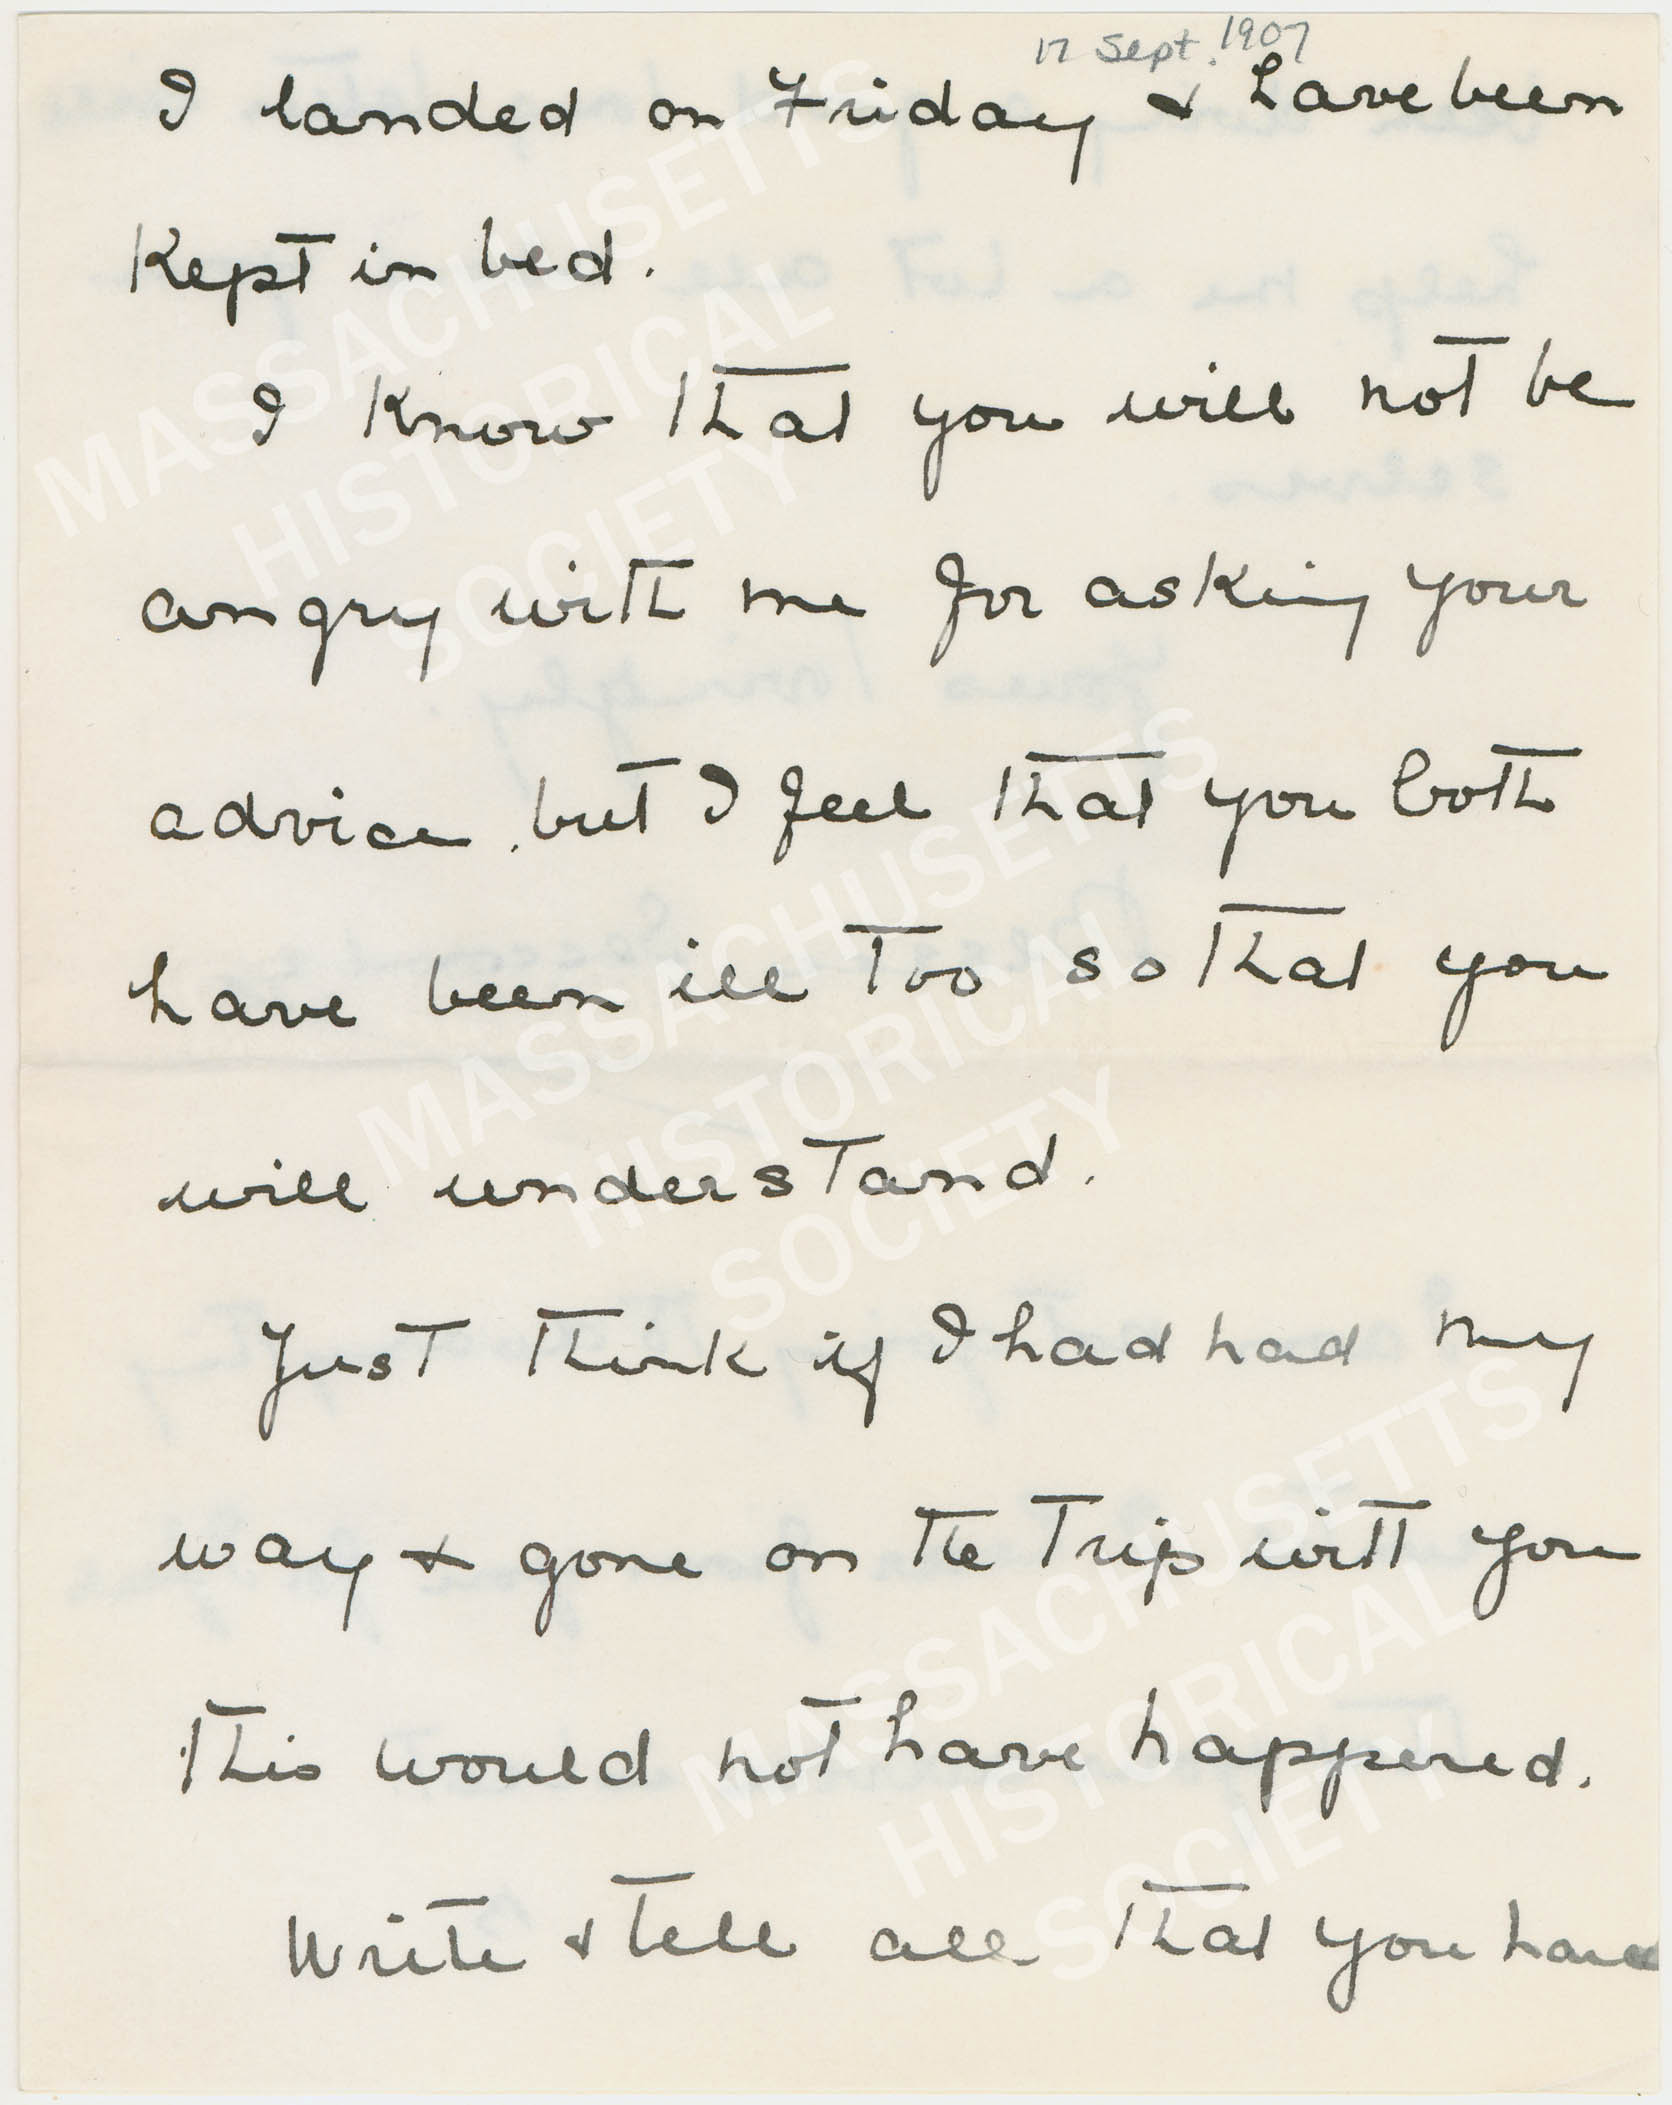 17 Sept. 1907
I landed on Friday & have been
kept in bed.
I know that you will not be
angry with me for asking your
advice, but I feel that you both
have been ill too so that you
will understand.
Just think if I had had my
way & gone on the trip with you
this would not have happened.
Write & tell all that you have
MASSACHUSETTS
HISTORICAL
SOCIETY
MASSACHUSETTS
HISTORICAL
SOCIETY
MASSACHUSETTS
HISTORICAL
SOCIETY